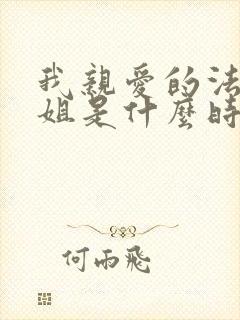 我親愛的法
姐是什麼時
何雨飛